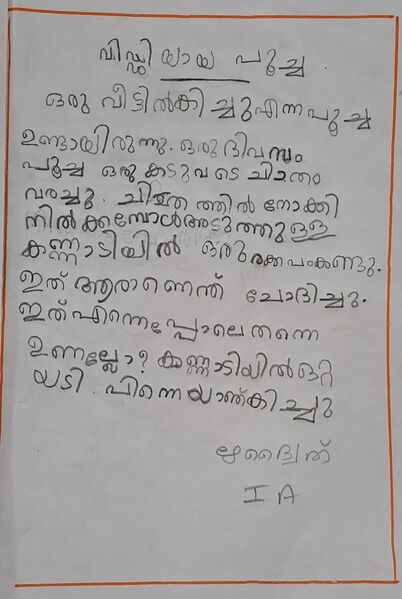 വിഡ്ഢിയായ പൂച്ച.
ഒരു വീട്ടിൽകിച്ചുഎന്നപൂച്ച
ഉണ്ടായിരുന്നു. ഒരുദിവസം
പൂച്ച ഒരു കടുവടെ ചിത്രം
വരച്ചു. ചിത്രത്തിൽ നോക്കി
നിൽക്കമ്പോൾഅടുത്തുള്ള
കണ്ണാടിയിൽ ഒരു രൂപംകണ്ടു.
ഇത് ആരാണെന്ത് ചോദിച്ചു.
ഇത്എന്നെപ്പോലെതന്നെ
ഉണ്ടല്ലോ? കണ്ണാടിയിൽഒറ്റ
യടി. പിന്നെയാണ്കിച്ചു
I A